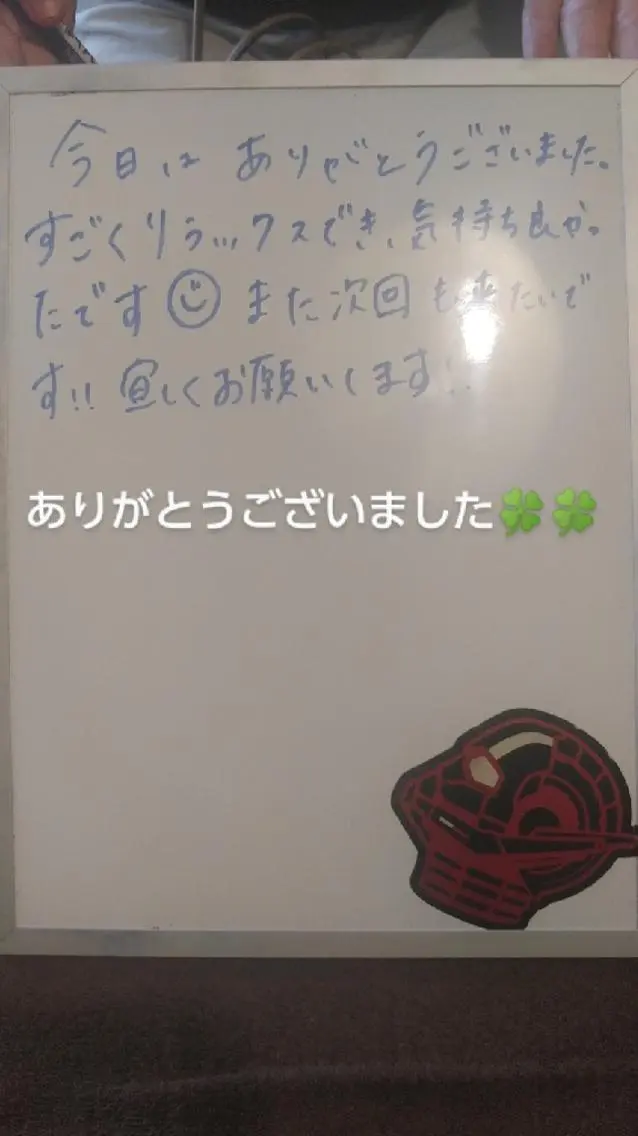 今日は ありがとうございました。
すごくリラックスでき、気持ち良かっ
たです☺ また次回も来たいで
す!! 宜しくお願いします!!
ありがとうございました🍀🍀